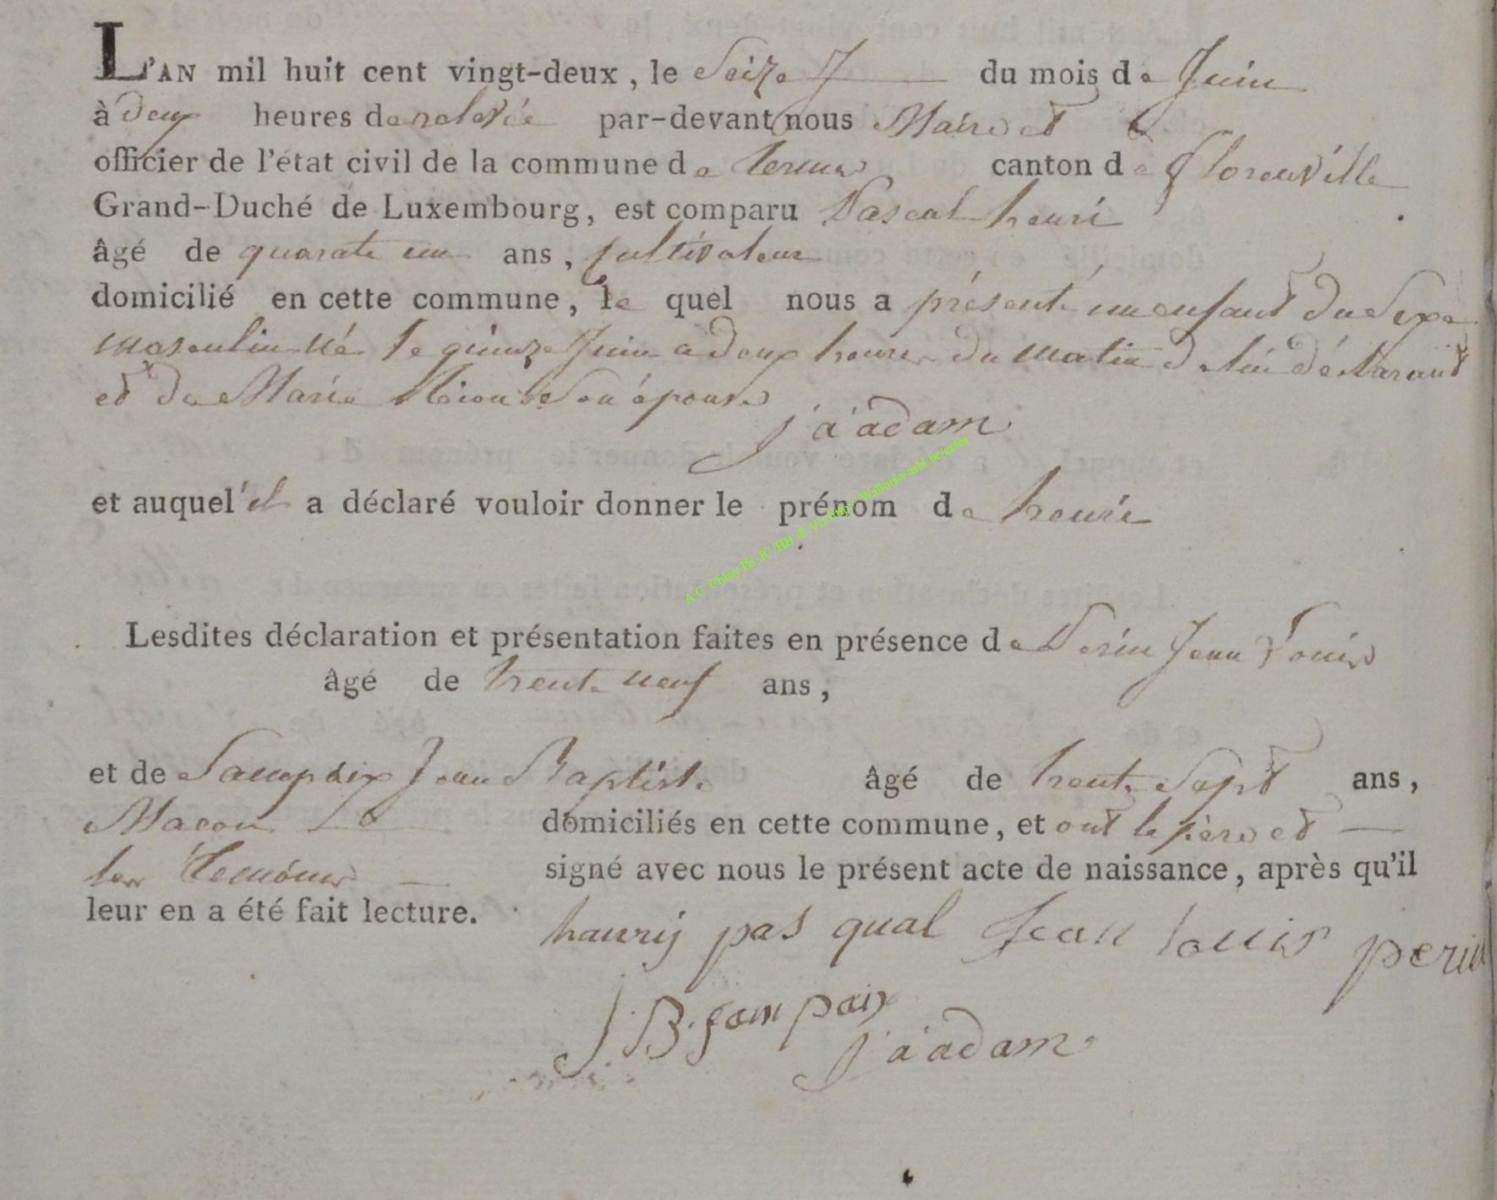 L'AN mil huit cent vingt-deux, le Seize du mois de Juin
à deux heures de relevée par-devant nous Maire et
officier de l'état civil de la commune de termes canton de florenville
Grand-Duché de Luxembourg, est comparu Pascal henri
âgé de quarate un ans, Cultivateur
domicilié en cette commune, le quel nous a présenté un enfant du Sexe
masculin né le quinze Juin a deux heures du matin de lui déclarant
et de Marie Son épouse
j a adam
et auquel il a déclaré vouloir donner le prénom de henri
Lesdites déclaration et présentation faites en présence de Perin Jean Louis
âgé de trente neuf ans,
et de Jean Baptiste âgé de trente Sept ans,
Macon domiciliés en cette commune, et ont le père et
les temoins signé avec nous le présent acte de naissance, après qu'il
leur en a été fait lecture.
haurij pas qual Jean louis perin
J.B. Sampaix
j a adam